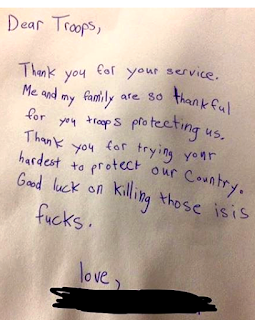 Dear Troops,
Thank you for your service.
Me and my family are so thankful
for you troops protecting us.
Thank you for trying your
hardest to protect our Country.
Good luck on killing those isis
fucks.
love,